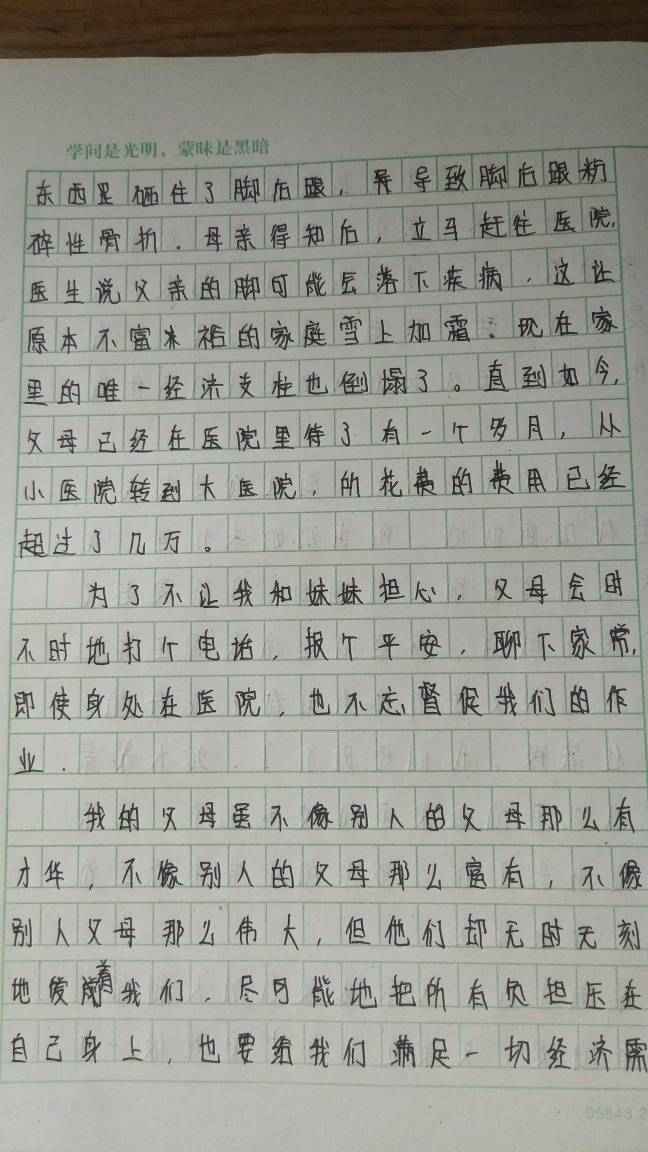 学问是光明，蒙昧是黑暗
东西是砸住了脚后跟，导致脚后跟粉
碎性骨折．母亲得知后，立马赶往医院，
医生说父亲的脚可能会落下疾病．这让
原本不富裕的家庭雪上加霜。现在家
里的唯一经济支柱也倒塌了。直到如今，
父母已经在医院里待了有一个多月，从
小医院转到大医院，所花费的费用已经
超过了几万。
为了不让我和妹妹担心，父母会时
不时地打个电话，报个平安，聊下家常，
即使身处在医院，也不忘督促我们的作
业．
我的父母虽不像别人的父母那么有
才华，不像别人的父母那么富有，不像
别人父母那么伟大，但他们却无时无刻
地爱着我们．尽可能地把所有负担压在
自己身上，也要给我们满足一切经济需
05643.2